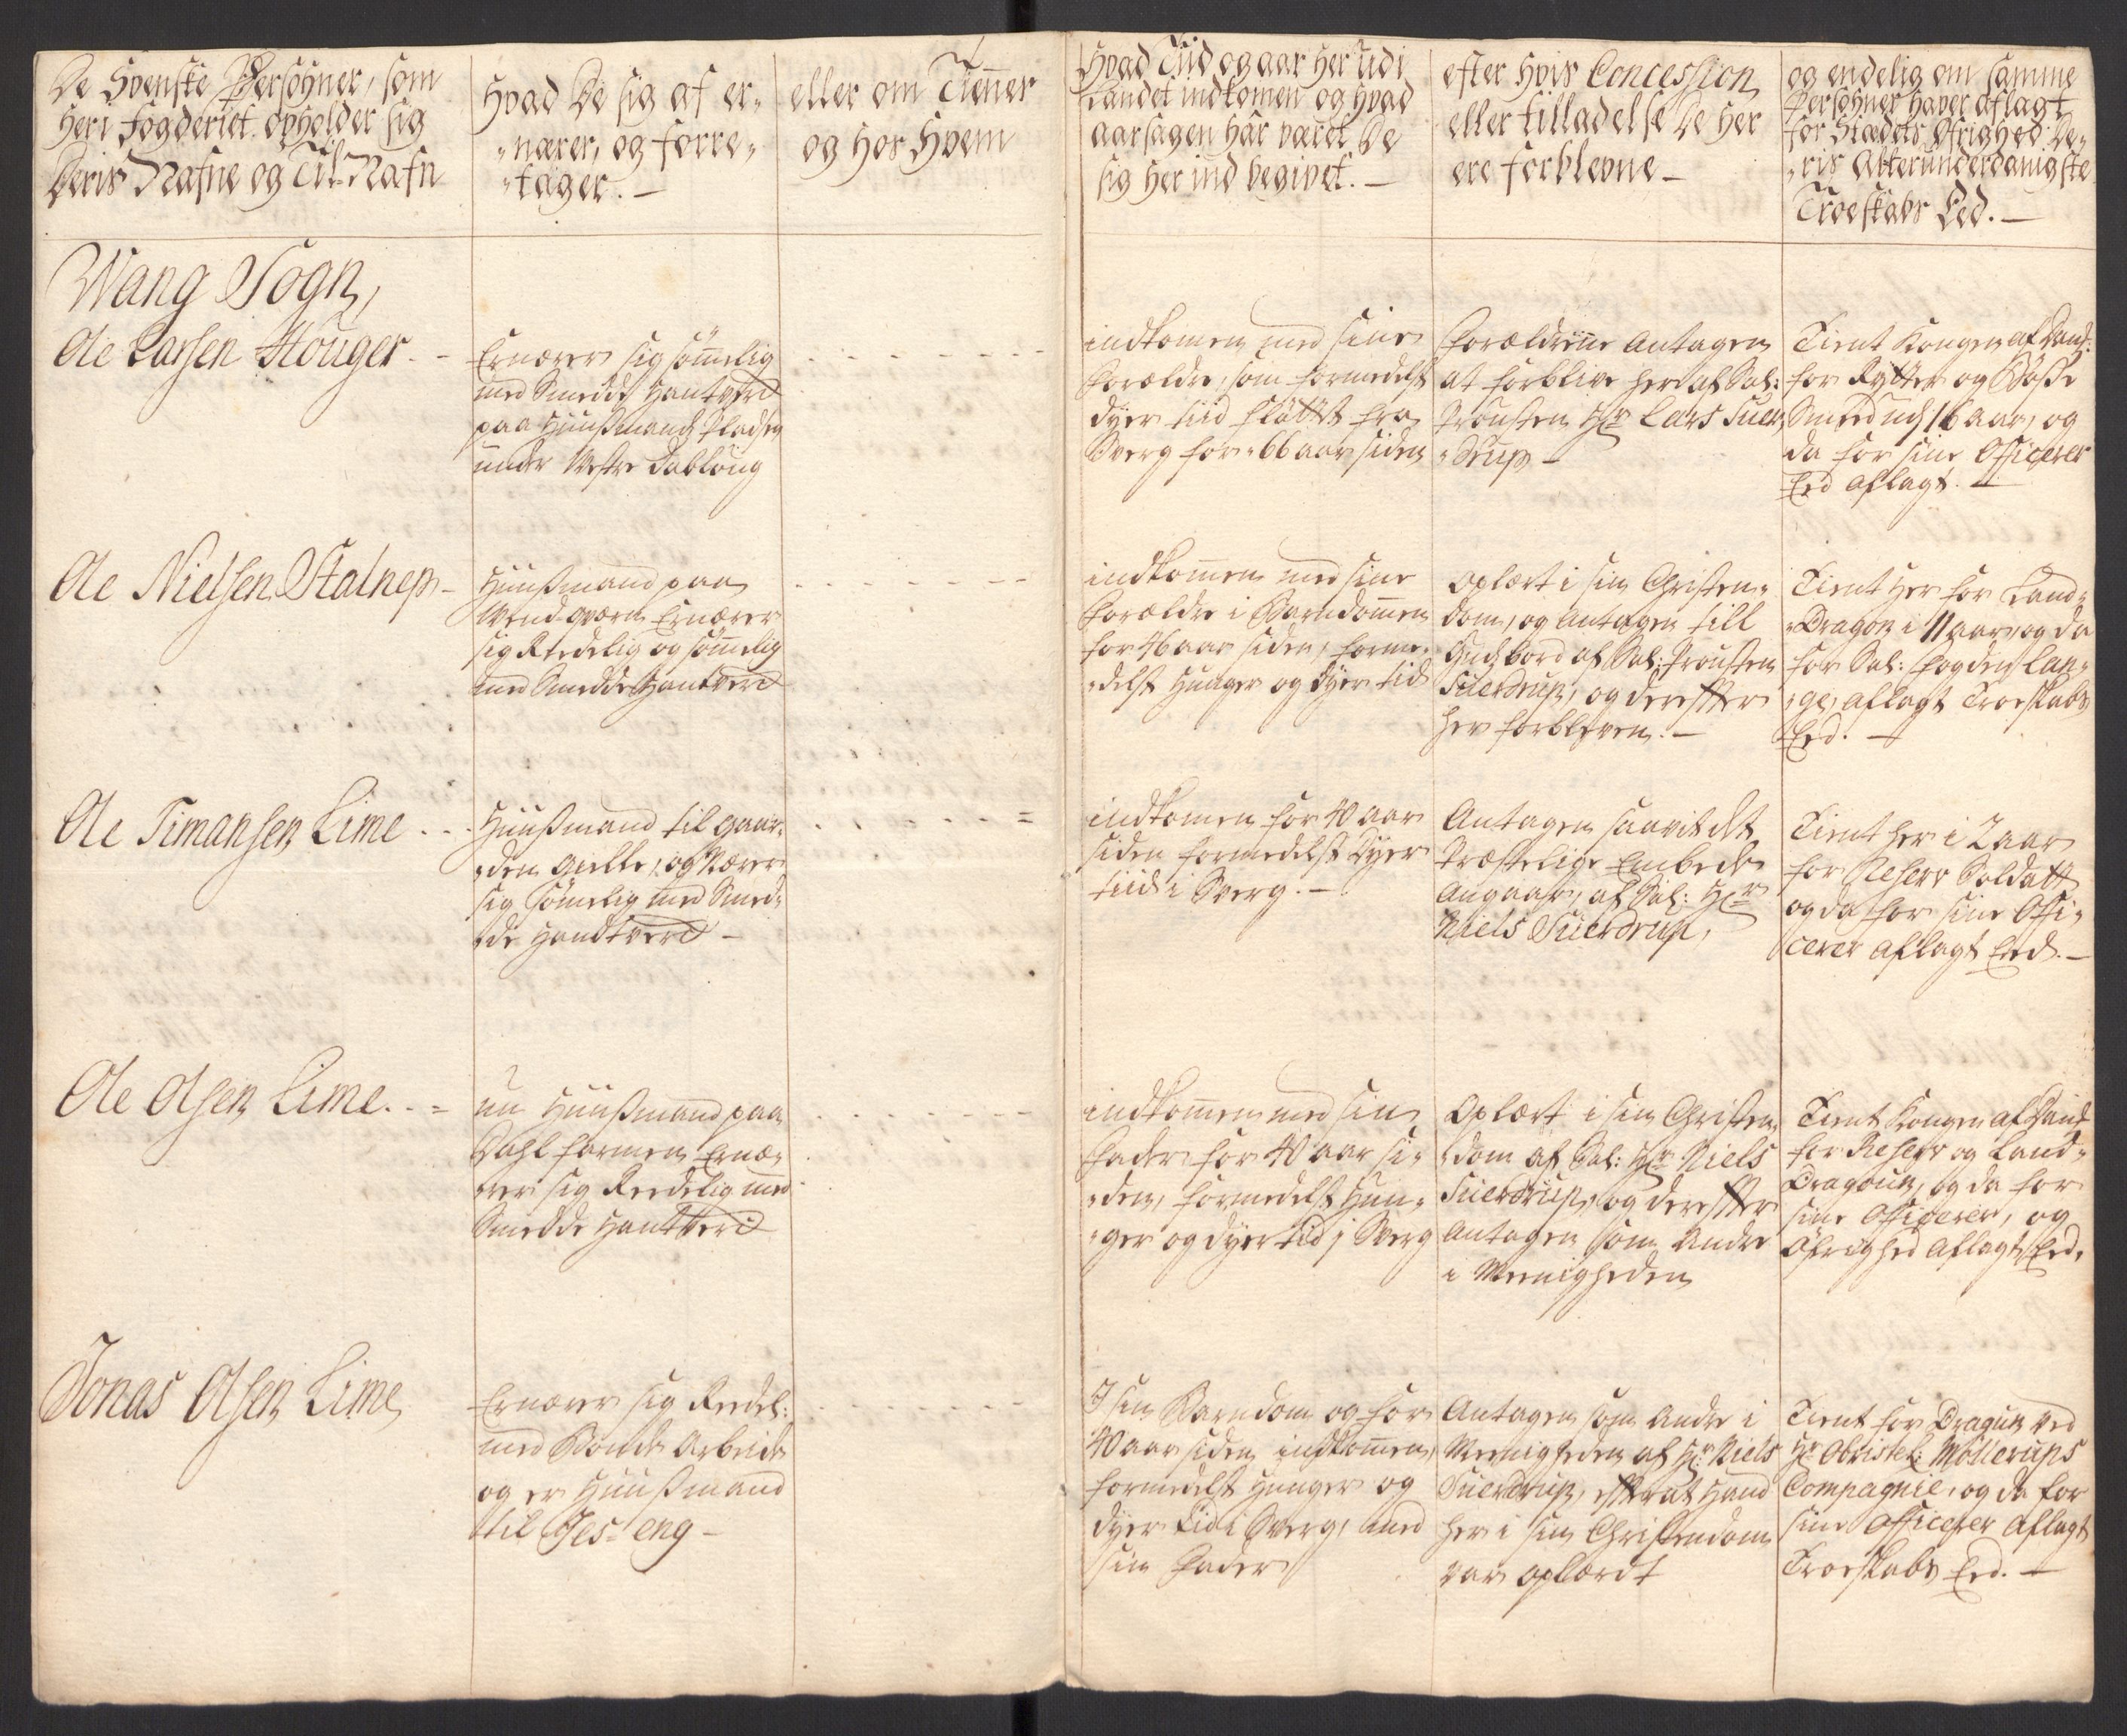 De Svenske Persohner, som
her i Fogderiet opholder sig
Deris Nafne og Til Nafn
Hvad De sig af er,,
,,nærer, og forre,,
,,tager. —
eller om Tienner
og Hos Hvem
Hvad Tiid og aar Her udi
Landet indkomen og Hvad
aarsagen Har været De
sig Her ind begivet. —
efter Hvis Concession
eller tilladelse De Her
ere forblevne —
og endelig om samme
Persohner Haver aflagt
for Stædets Øfrighed De,,
,,ris Allerunderdanigste
Troeskabs Eed. —
Wang Sogn,
Ole Larsen Houger
Ernærer sig sømmelig
med Smedde Hantverk
paa Huusmands Pladsen
under Westre Dabloug
indkomen med sine
Forældre, som formedelst
dyer tiid fløttet fra
Sverg for 66 aar siden
Forældrene Antagen
at forblive her af Sal:
Provsten Hr Lars Suer,,
,,Drup —
Tient Kongen af Dan:
for Rytter og Bøsse
Smed udj 16 aar, og
da for sine Officerer
Eed aflagt. —
Ole Nielsen Stalnep
Huusmand paa
Wend-qværn Ernærer
sig Redelig og sømmelig
med Smedde Hantverk
indkommen med sine
Forældre i Barndommen
for 46 aar siden, forme,,
,,delst Hunger og dyer tid
Oplært i sin Christen,,
dom, og Antagen till
Guds bord af Sal: Provsten
Suerdrup, og derefter
her forbleven. —
Tient her for Land,,
,,Dragon i 11 aar, og da
for Sal: fogden Lan,,
,,ge, aflagt Troeskabs
Eed. —
Ole Timansen Lime
Huusmand til gaar,,
,,den Gielle, og Nærer
sig sømelig med Smed,,
,,de Handtverk —
indkomen for 40 aar
siden formedelst dyer
tiid i Sverg. —
Antagen saavit det
Præstelige Embede
angaar, af Sal: Hr
Niels Suerdrup,
Tient her i 2 aar
for Reserv Soldatt
og da for sine Offi,,
cerer aflagt Eed. —
Ole Olsen Lime
en Huusmand paa
Dahl farmen Ernæ,,
,,rer sig Redelig med
Smedde Hantverk
indkommen med sin
Fader for 40 aar si,,
,,den, formedelst Hun,,
,,ger og dyer tid i Sverg
Oplært i sin Christen,,
,,dom af Sal: Hr Niels
Suerdrup, og derefter
Antagen som Andre
i Meenigheden
Tient Kongen af Dan:
for Reserv og Land,,
Dragoun, og da for
sine Officerer, og
Øfrighed aflagt Eed.
Jonas Olsen Lime
Ernærer sig Redel:
med Bonde Arbeide
og er Huusmand
til Jes-eng —
I sin Barndom og for
40 aar siden indkommen,
formedelst Hunger og
dyer tid i Sverg, med
sin Fader
Antagen som Andre i
Meenigheden af Hr Niels
Suerdrup, efter at Hand
her i sin Christendom
var oplærdt
Tient for Dragun ved
Hr Obristel: Möllerups
Compagnie, og da for
sine Officerer aflagt
Troeskabs Eed. —